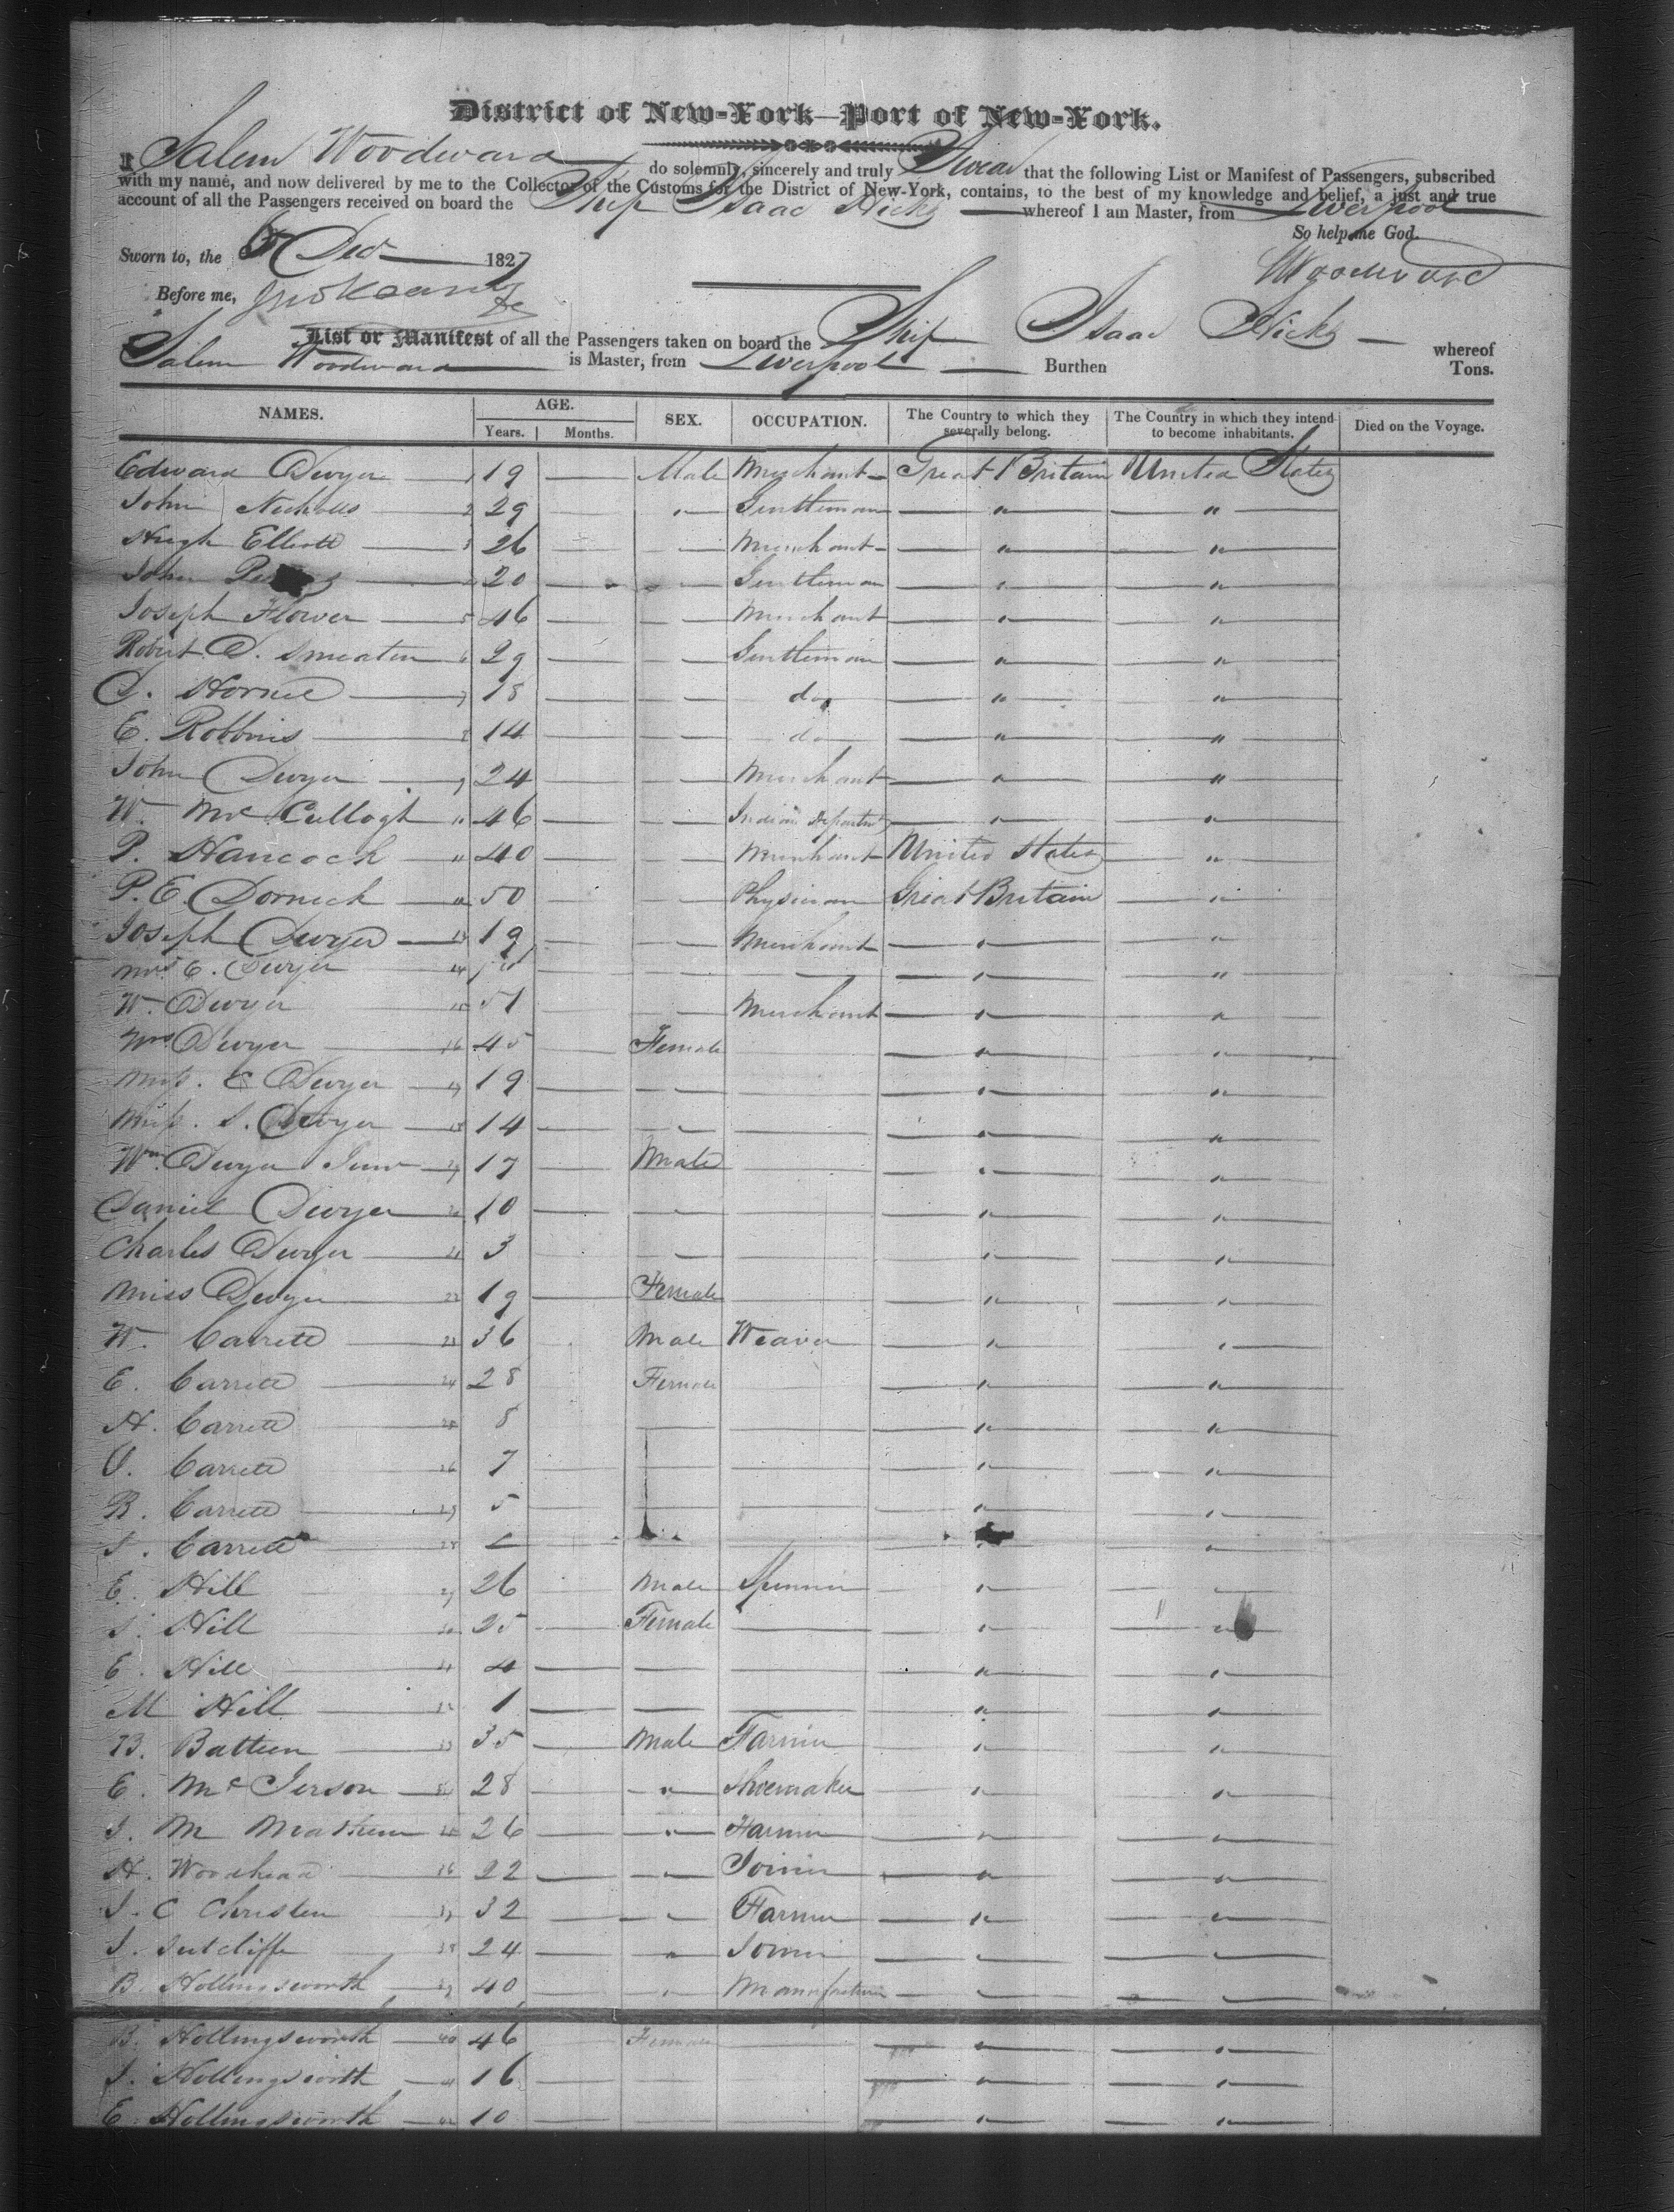 District of New-York—Port of New-York.
I Salem Woodward do solemnly, sincerely and truly Swear that the following List or Manifest of Passengers, subscribed
with my name, and now delivered by me to the Collector of the Customs for the District of New-York, contains, to the best of my knowledge and belief, a just and true
account of all the Passengers received on board the Ship Isaac Hicks whereof I am Master, from Liverpool
So help me God.
Sworn to, the 6 Dec 1827 Woodward
Before me,
List or Manifest of all the Passengers taken on board the Ship Isaac Hicks whereof
Salem Woodward is Master, from Liverpool Burthen Tons.
NAMES. AGE. SEX. OCCUPATION. The Country to which they severally belong. The Country in which they intend to become inhabitants. Died on the Voyage.
Years. Months.
Edward Dwyer 1 19 Male Merchant Great Britain United States
John Nicholls 2 29 " Gentleman " "
Hugh Elliott 3 26 Merchant " "
John 4 20 Gentleman " "
Joseph Flower 5 46 Merchant " "
Robert D. Smeaton 6 29 Gentleman " "
D. Horne 7 18 do " "
E. Robbins 8 14 do " "
John Dwyer 9 24 Merchant " "
W. McCullogh 10 46 Indian Departmt " "
P. Hancock 11 40 Merchant United States "
P. E. Dornick 12 50 Physician Great Britain "
Joseph Dwyer 13 19 Merchant " "
E. Dwyer 14 " "
W. Dwyer 15 51 Merchant " "
Mrs Dwyer 16 45 Female " "
Miss. E Dwyer 17 19 " "
Miss. S. Dwyer 18 14 " "
Wm Dwyer Junr 19 17 Male " "
Daniel Dwyer 20 10 " "
Charles Dwyer 21 3 " "
Miss Dwyer 22 19 Female " "
W. Carrett 23 36 Male Weaver " "
E. Carrett 24 28 Female " "
H. Carrett 25 8 " "
J. Carrett 26 7 " "
R. Carrett 27 5 " "
S. Carrett 28 " "
E. Hill 29 26 Male Spinner " "
S. Hill 30 25 Female " "
E. Hill 31 4 " "
M Hill 32 1 " "
B. Batteen 33 35 Male Farmer " "
E. McJerson 34 28 " Shoemaker " "
J. M 35 26 " Farmer " "
H. Woodhead 36 22 " Joiner " "
J. C Christen 37 32 " Farmer " "
J. Sutcliffe 38 24 " Joiner " "
B. Hollingsworth 39 40 " Manufacturer " "
B. Hollingsworth 40 46 Female " "
J. Hollingsworth 41 16 " "
E. Hollingsworth 42 10 " "